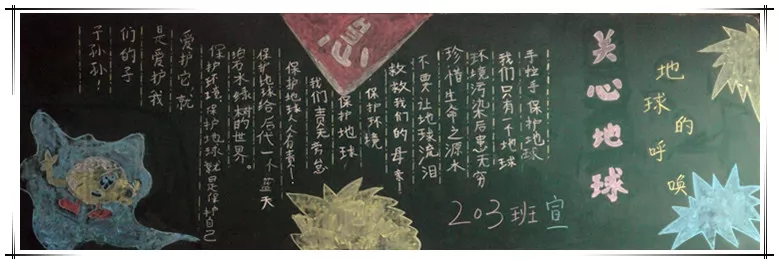 关心地球
地球的呼唤
手拉手保护地球
我们只有一个地球
环境污染后患无穷
珍惜生命之源水
不要让地球流泪
救救我们的母亲!
保护环境
保护地球
我们责无旁怠
保护地球人人有责!
保护地球给后代一个蓝天
碧水绿树的世界。
保护环境保护地球就是保护自己
爱护它,就
是爱护我
们的子
子孙孙!
203班宣